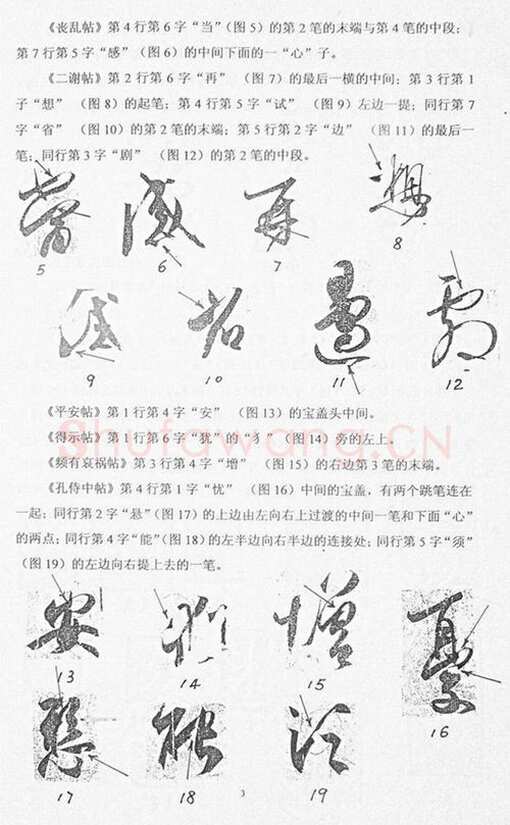 《丧乱帖》第4行第6字“当”(图5)的第2笔的末端与第4笔的中段;
第7行第5字“感”(图6)的中间下面的一“心”子。
《二谢帖》第2行第6字“再”(图7)的最后一横的中间;第3行第1
子“想”(图8)的起笔;第4行第5字“试”(图9)左边一提;同行第7
字“省”(图10)的第2笔的末端;第5行第2字“边”(图11)的最后一
笔;同行第3字“剧”(图12)的第2笔的中段。
5
6
7
8
9
10
11
12
《平安帖》第1行第4字“安”(图13)的宝盖头中间。
《得示帖》第1行第6字“犹”的“犭”(图14)旁的左上。
《频有哀祸帖》第3行第4字“增”(图15)的右边第3笔的末端。
《孔侍中帖》第4行第1字“忧”(图16)中间的宝盖,有两个跳笔连在
一起;同行第2字“悬”(图17)的上边由左向右上过渡的中间一笔和下面“心”
的两点;同行第4字“能”(图18)的左半边向右半边的连接处;同行第5字“须”
(图19)的左边向右提上去的一笔。
Shufawang.CN
13
14
15
16
17
18
19
3